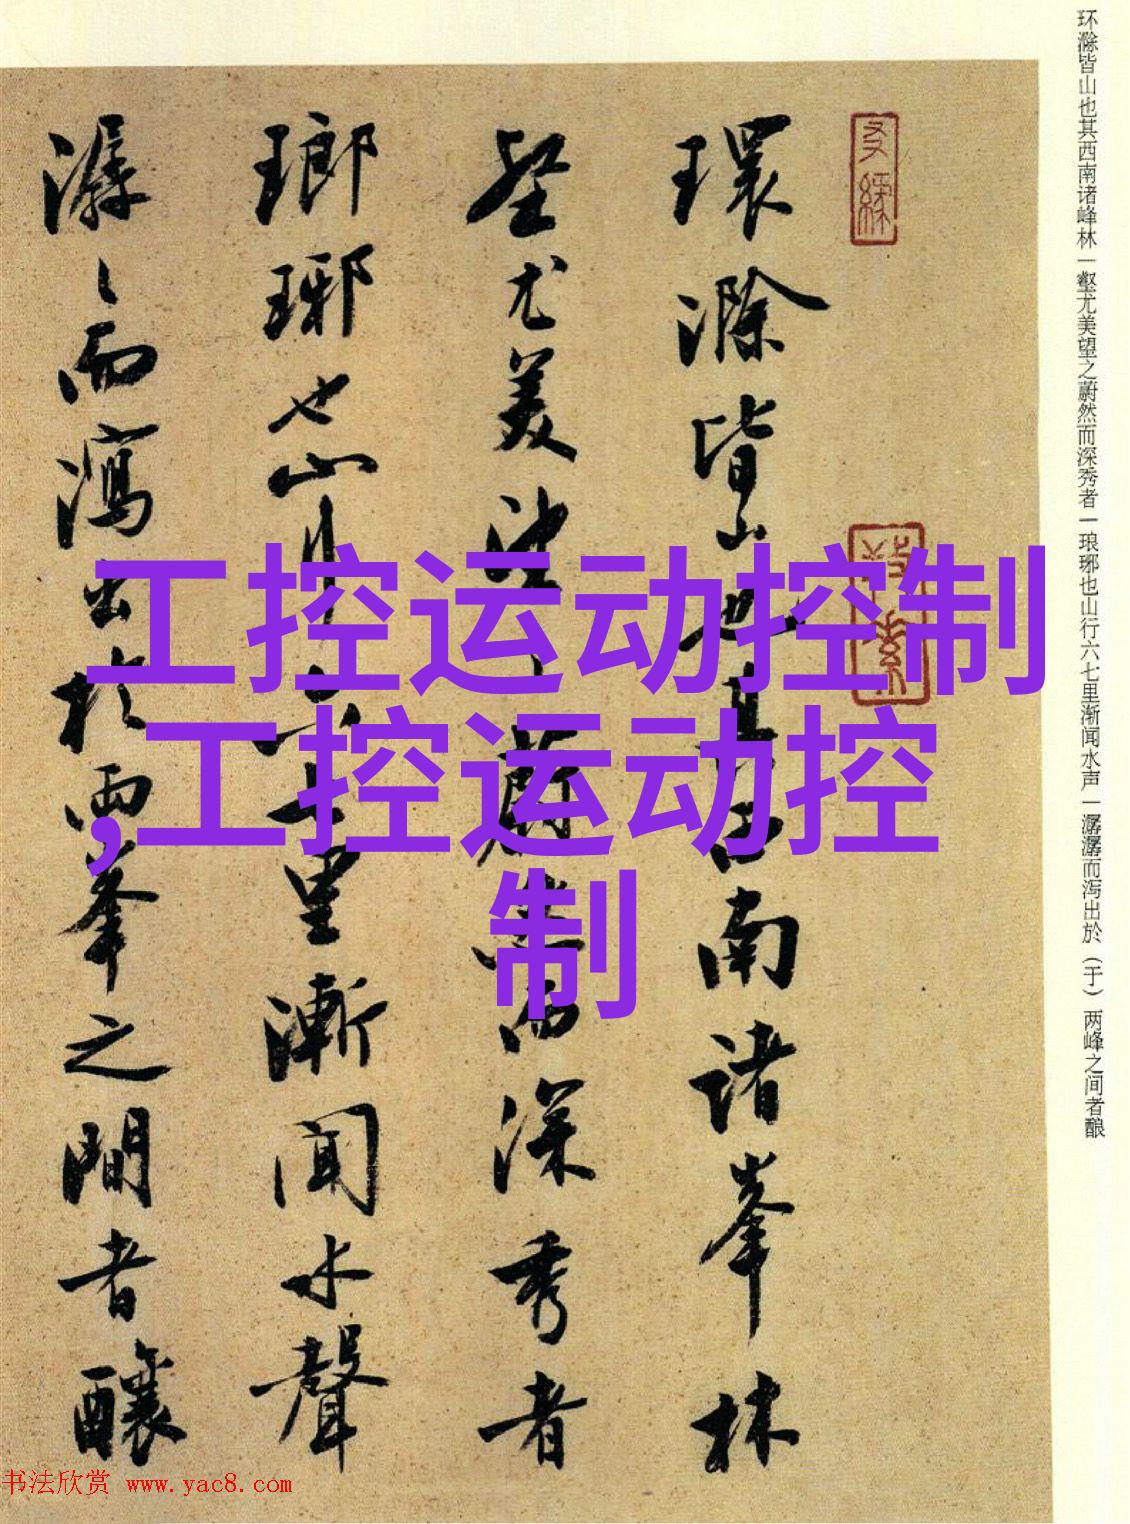 环滁皆山也其西南诸峰林一壑尤美望之蔚然而深秀者一琅琊也山行六七里渐闻水声一潺潺而泻出於（于）两峰之间者酿
環滁皆山也其西南诸峯林
壑尤美望之蔚然而深秀者
瑯琊也山行六七里漸闻水聲
潺〻而瀉出於兩峯之間者釀
工控运动控制
,工控运动控
制
书法欣赏 www.yac8.com